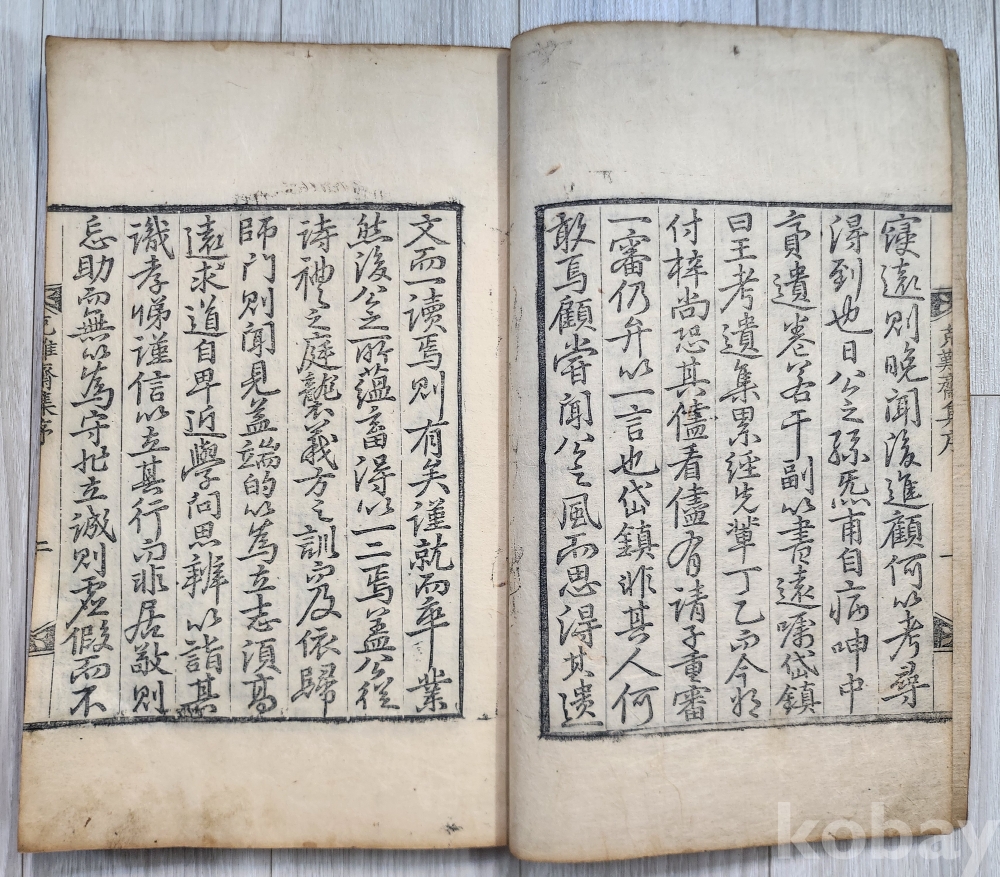 寖遠則晚聞後進顧何以考尋
得到也日公之孫炁甫自病呻中
賷遺卷若干副以書遠囑岱鎭
曰王考遺集累經先輩丁乙而今將
付梓尚恐其儘看儘有請子重審
一審仍弁以一言也岱鎭非其人何
敢焉顧嘗聞公之風而思得其遺
難齋集序 一
文而一讀焉則有矣謹就而卒業
然後公之所蘊畜得以一二焉蓋公從
詩禮之庭襲義方之訓而及依歸
師門則聞見益端的以為立志須高
遠求道自卑近學問思辨以詣其
識孝悌謹信以立其行而非居敬則
忘助而無以為守非立誠則虛假而不
難齋集序 二
kobay